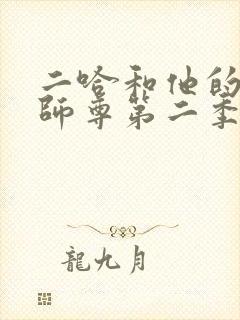 二哈和他的
師尊第二季
龍九月